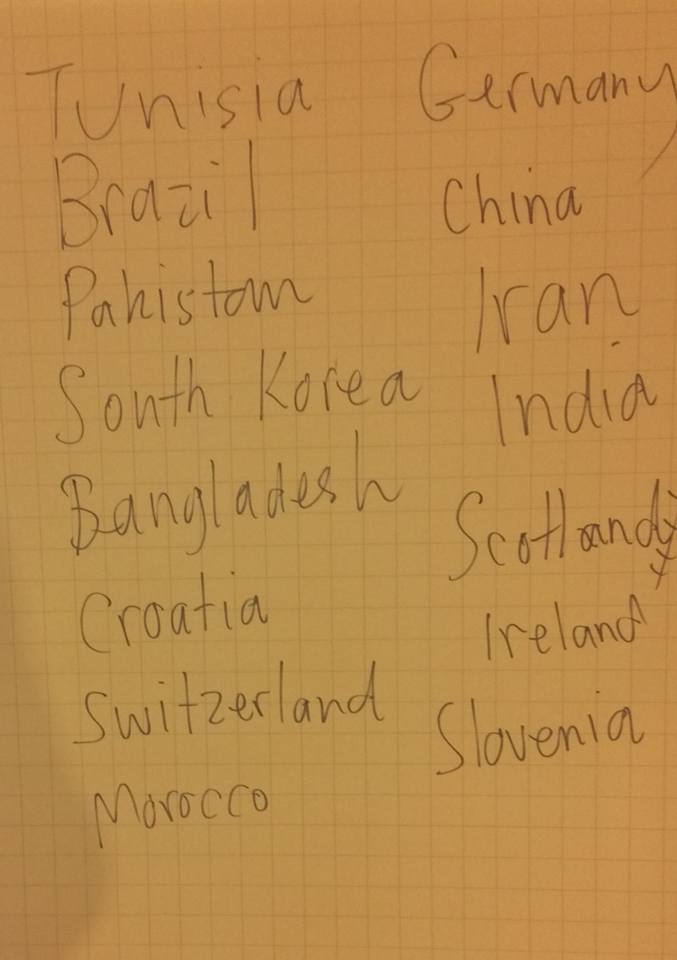 Tunisia
Brazil
Pakistan
South Korea
Bangladesh
Croatia
Switzerland
Morocco
Germany
China
Iran
India
Scotland
Ireland
Slovenia